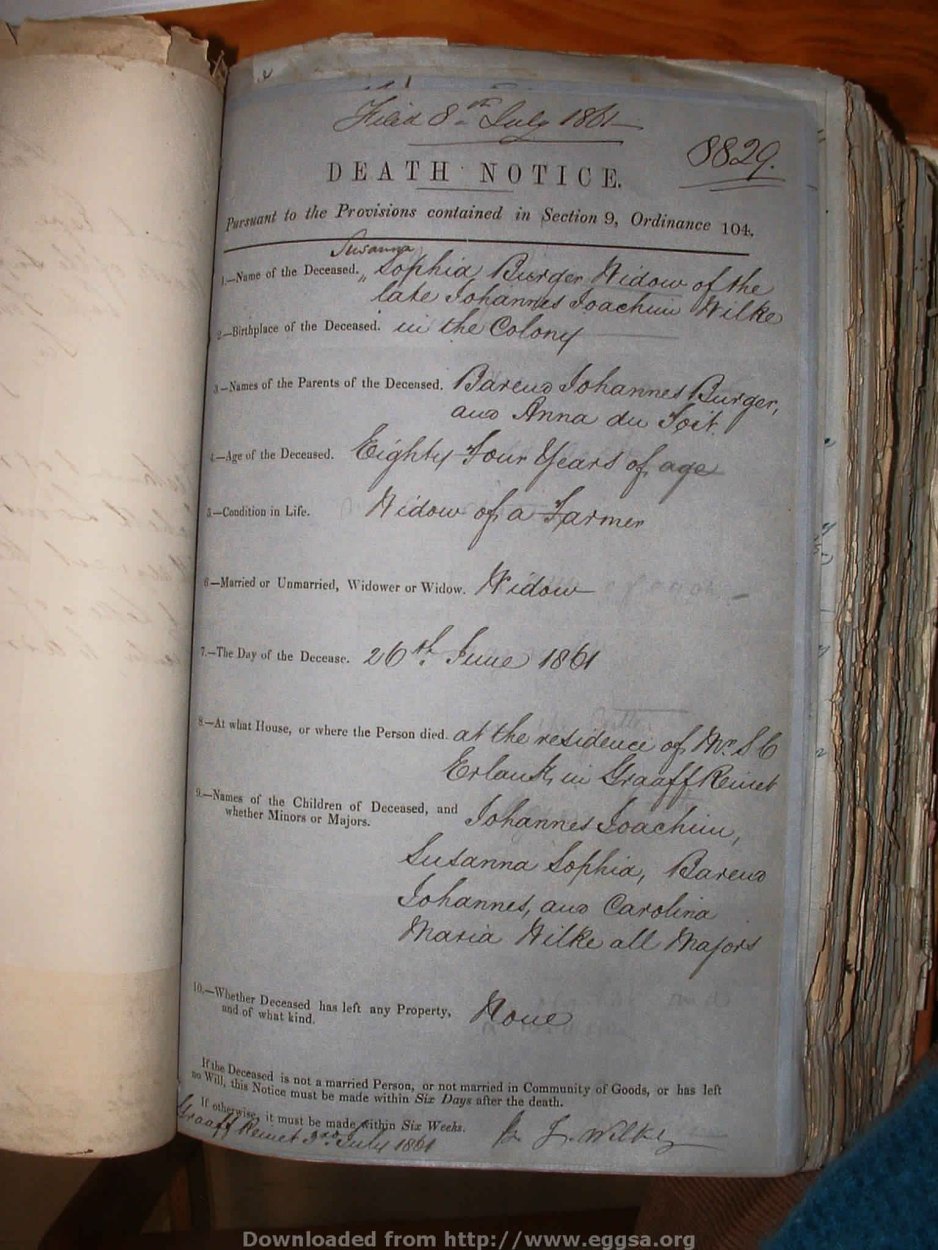 Filed 8th July 1861
8829.
DEATH NOTICE.
Pursuant to the Provisions contained in Section 9, Ordinance 104.
Susanna
1.—Name of the Deceased. „ Sophia Burger Widow of the
late Johannes Joachim Wilke
2.—Birthplace of the Deceased. in the Colony
3.—Names of the Parents of the Deceased. Barend Johannes Burger,
and Anna du Toit.
4.—Age of the Deceased. Eighty Four Years of age
5.—Condition in Life. Widow of a Farmer
6.—Married or Unmarried, Widower or Widow. Widow
7.—The Day of the Decease. 26th. June 1861
8.—At what House, or where the Person died. at the residence of Mr. S C
Erlank, in Graaff Reinet
9.—Names of the Children of Deceased, and Johannes Joachim,
whether Minors or Majors.
Susanna Sophia, Barend
Johannes, and Carolina
Maria Wilke all Majors
10.—Whether Deceased has left any Property, None
and of what kind.
If the Deceased is not a married Person, or not married in Community of Goods, or has left
no Will, this Notice must be made within Six Days after the death.
If otherwise, it must be made within Six Weeks.
Graaff Reinet 3rd July 1861
B J. Wilke
Downloaded from http://www.eggsa.org